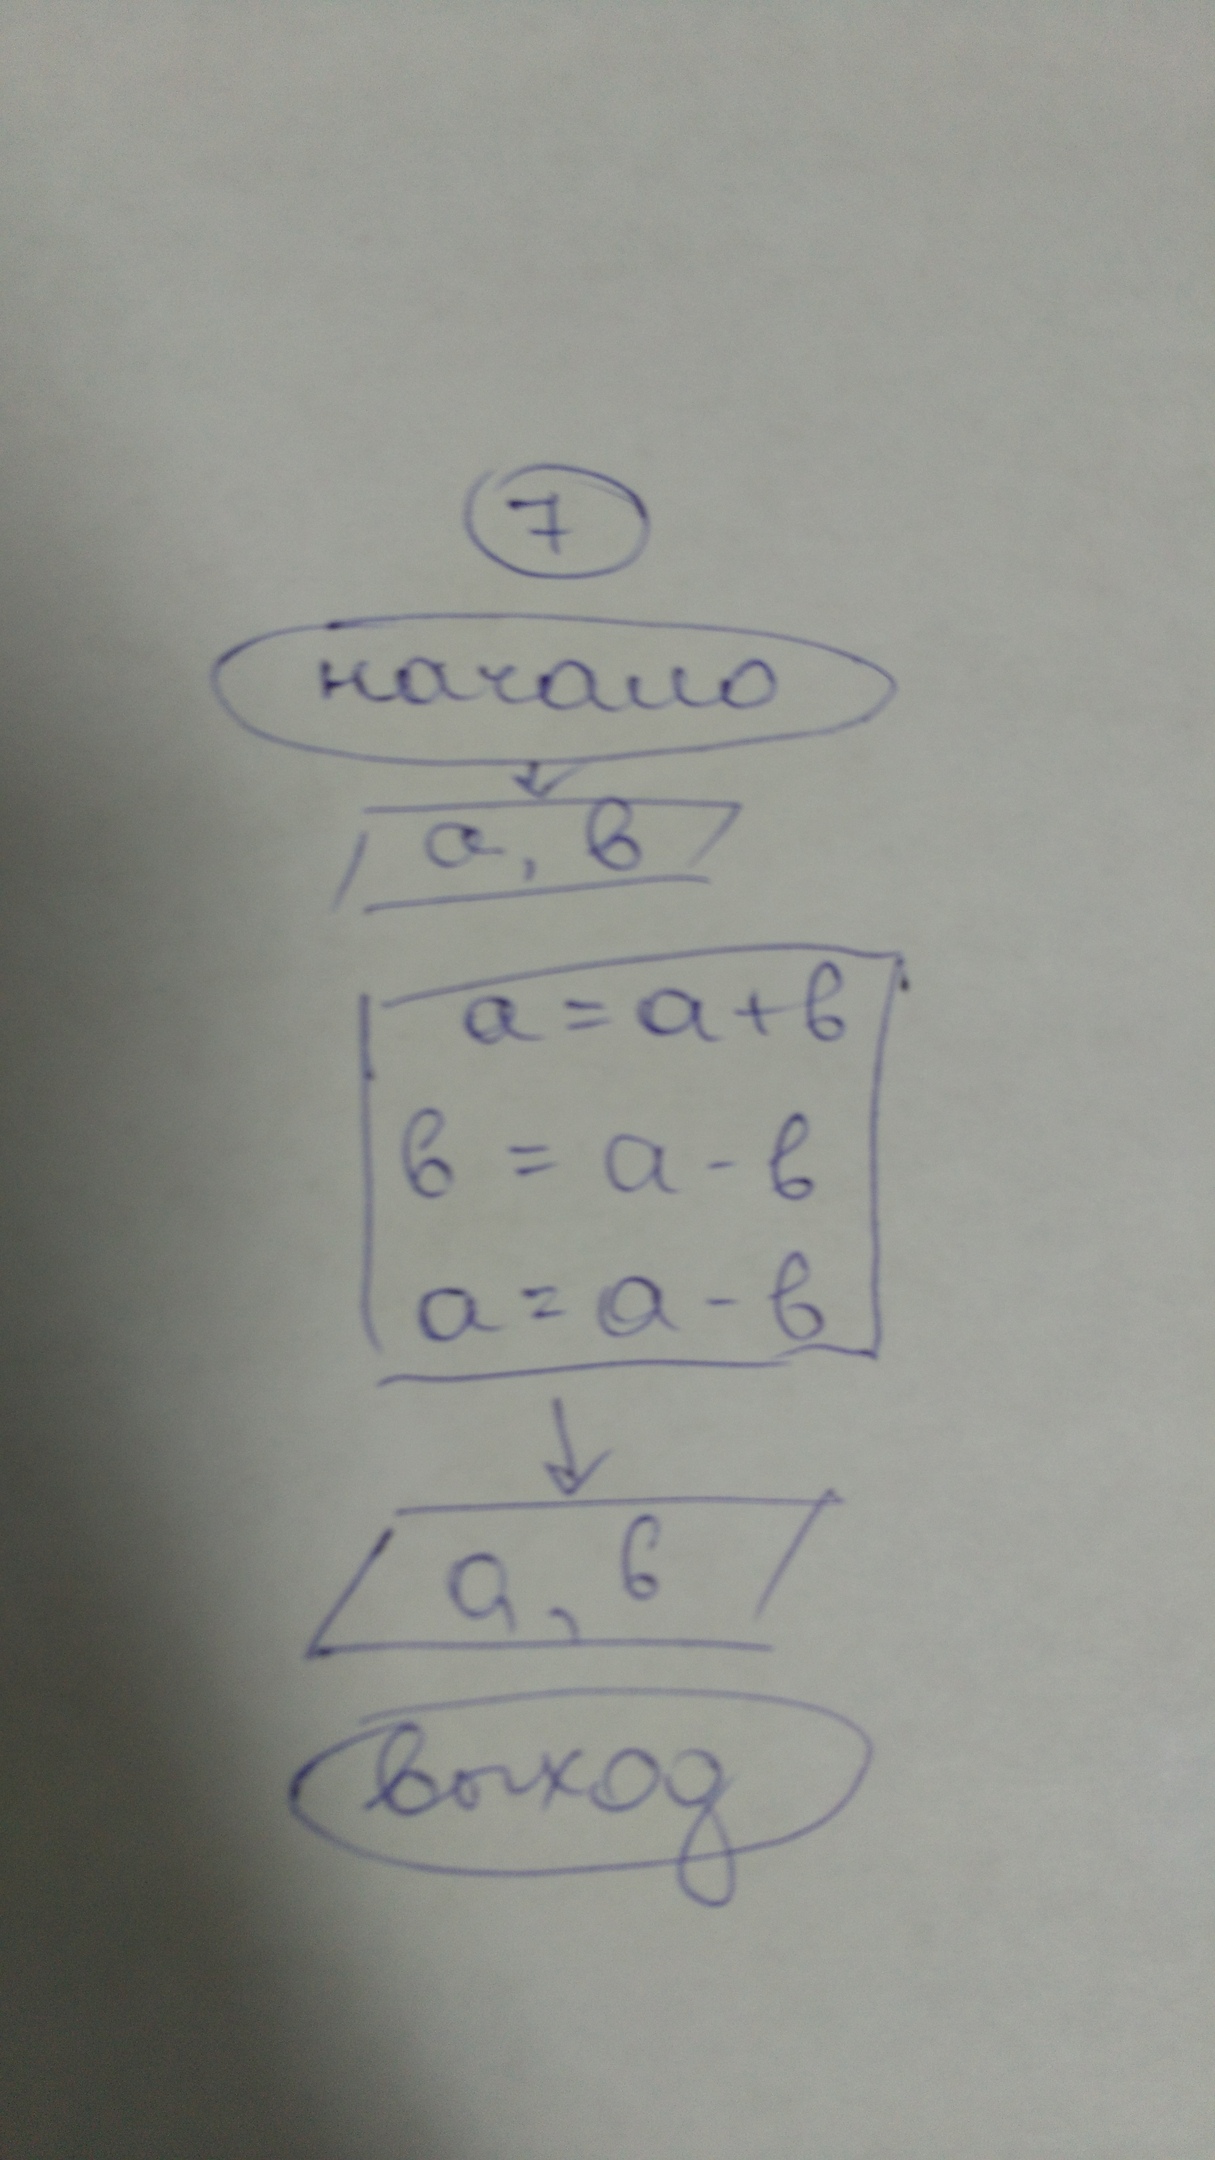 7
начало
а, в
а = а + в
в = а - в
а = а - в
а, в
выход